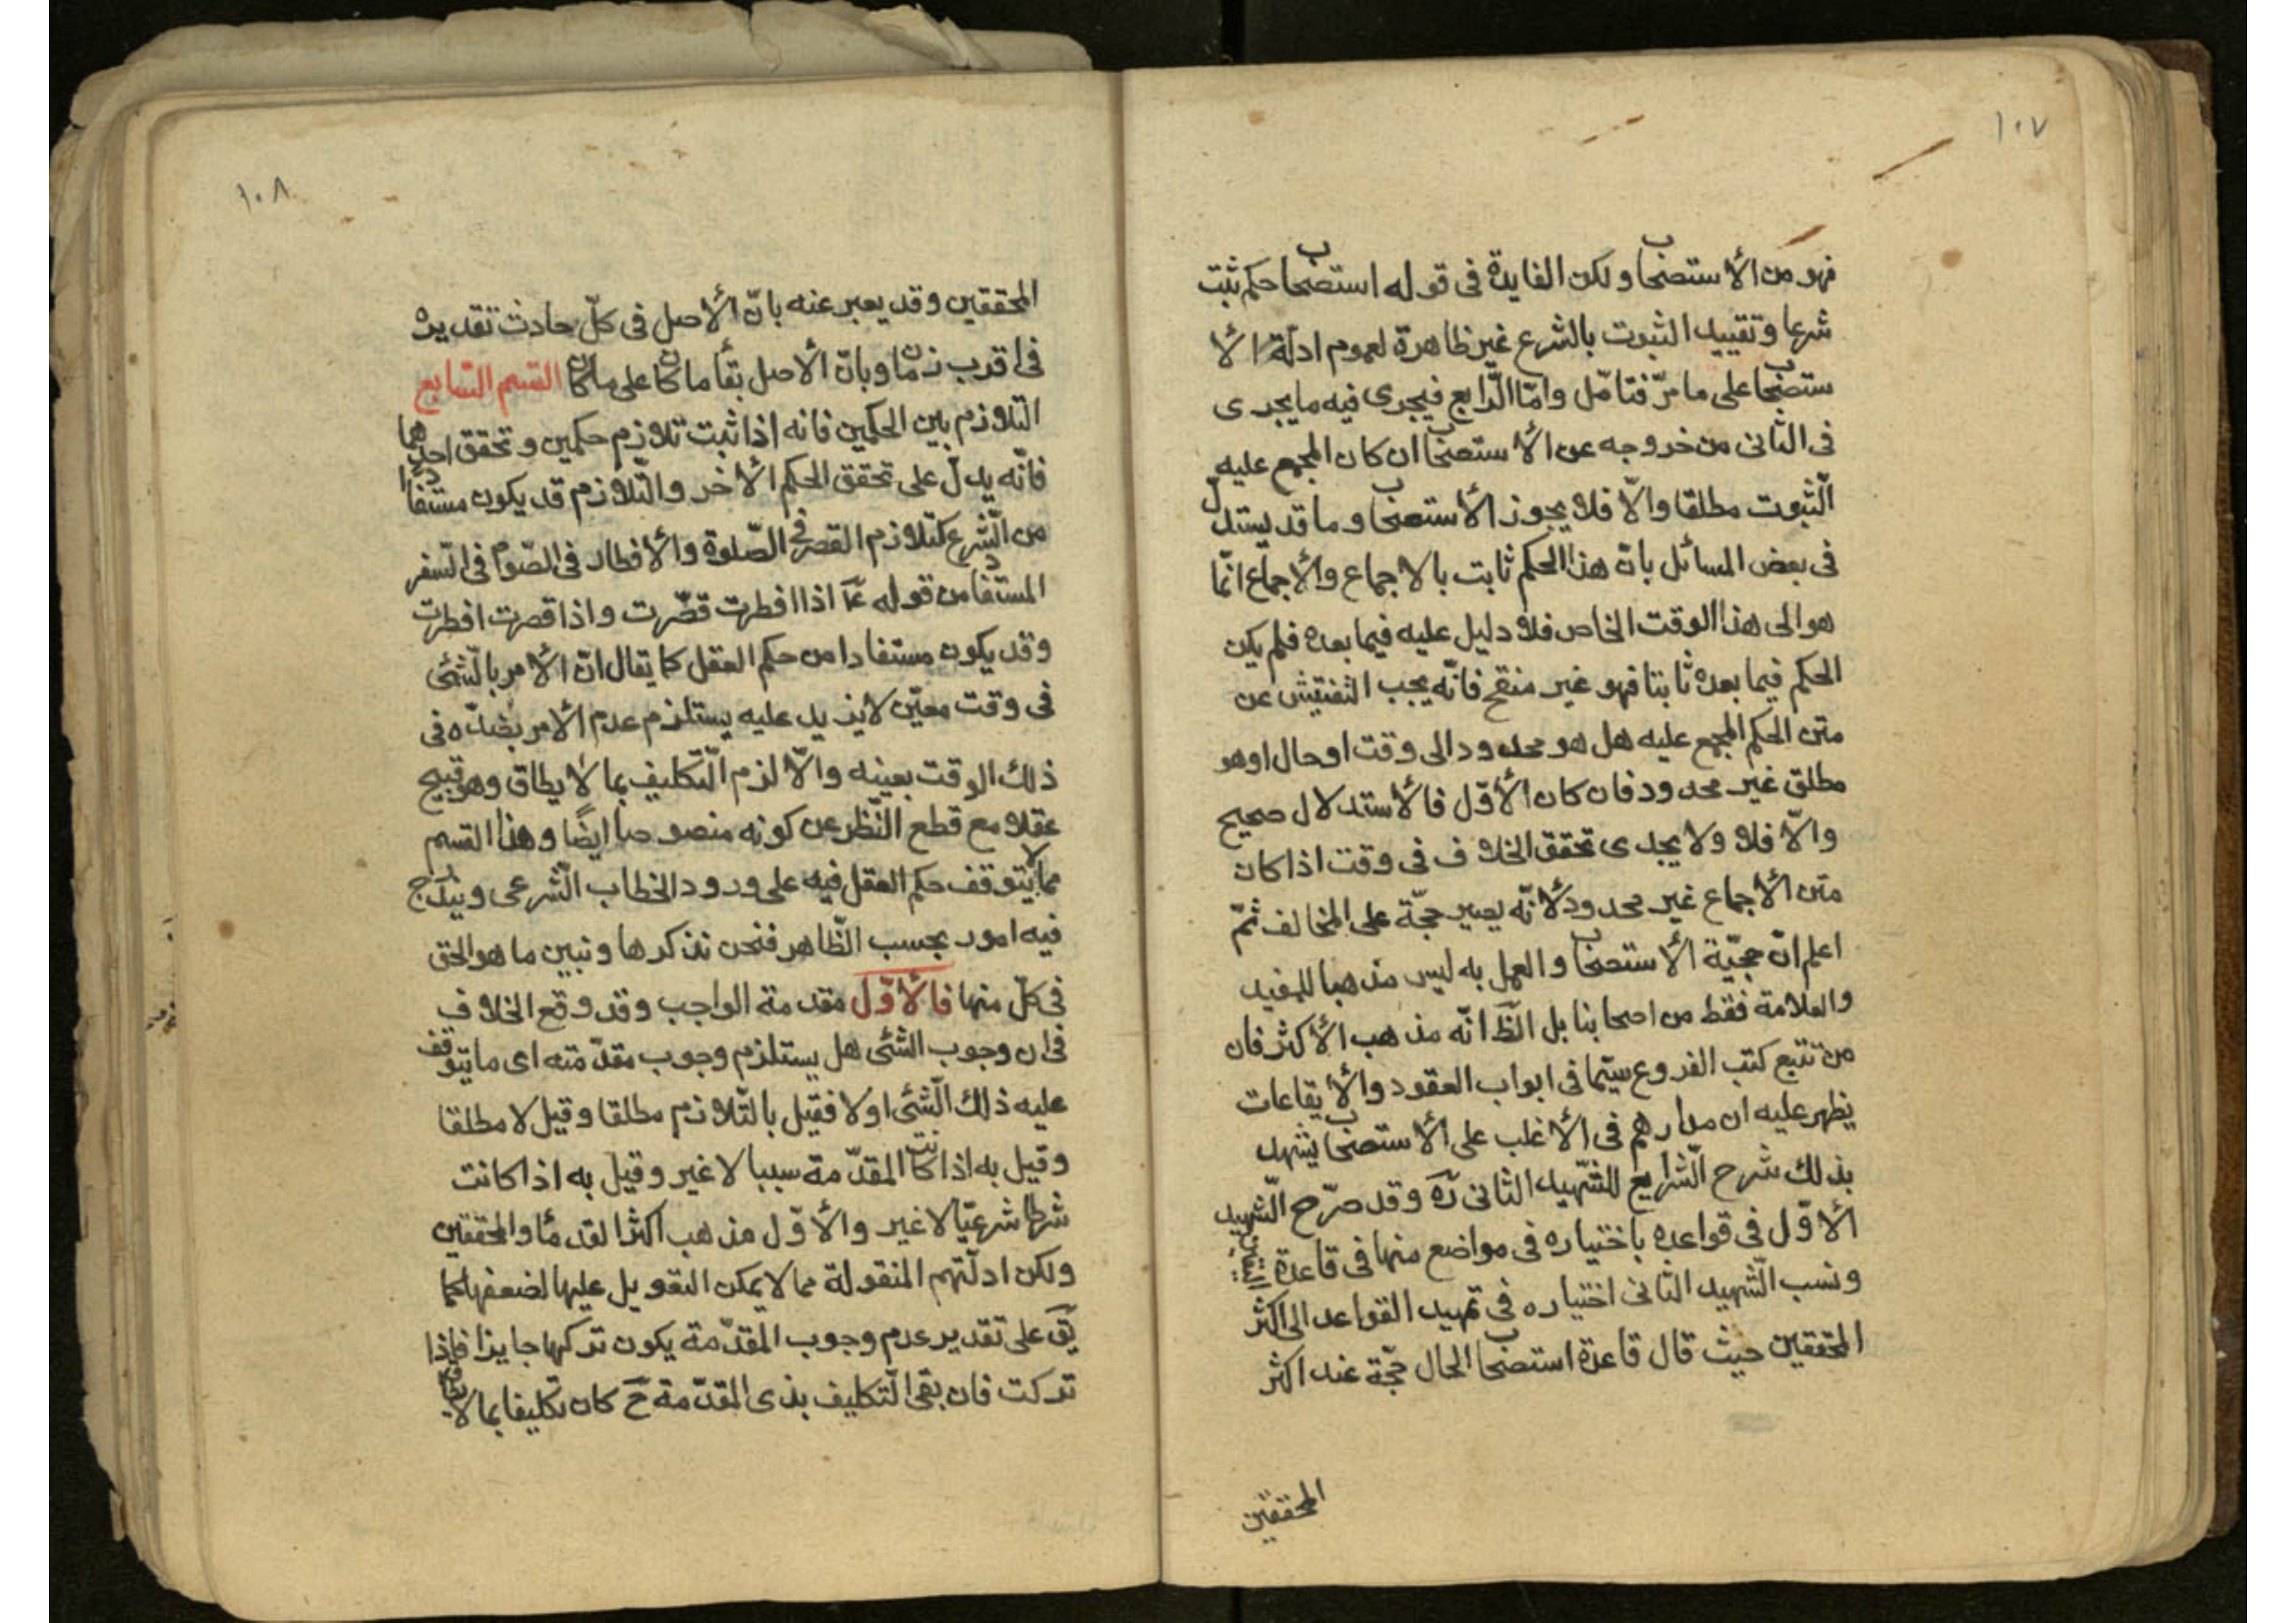 ١٠٧
فهو من الأستصحاب ولكن الفايدة فى قوله استصحاب حكم ثبت
شرعا وتقييد الثبوت بالشرع غير ظاهرة لعموم ادلّة الأ
ستصحاب على ما مرّ فتامّل وامّا الرّابع فيجرى فيه ما يجرى
فى الثانى من خروجه عن الأستصحاب ان كان المجمع عليه
الثّبوت مطلقا والّا فلا يجوز الأستصحاب وما قد يستدل
فى بعض المسائل بانّ هذا الحكم ثابت بالاجماع والأجماع انّما
هو الى هذا الوقت الخاص فلا دليل عليه فيما بعده فلم يكن
الحكم فيما بعده ثابتا فهو غير منقح فانّه يجب التفتيش عن
متن الحكم المجمع عليه هل هو محدود الى وقت او حال او هو
مطلق غير محدود فان كان الأوّل فالأستدلال صحيح
والّا فلا ولا يجدى تحقق الخلاف فى وقت اذا كان
متن الأجماع غير محدود لأنّه يصير حجّة على المخالف ثمّ
اعلم انّ حجيّة الأستصحاب والعمل به ليس مذهبا للمفيد
والعلامة فقط من اصحابنا بل الظّ انّه مذهب الأكثر فان
من تتبع كتب الفروع سيّما فى ابواب العقود والأيقاعات
يظهر عليه ان مدارهم فى الأغلب على الأستصحاب يشهد
بذلك شرح الشّرايع للشّهيد الثانى ره وقد صرّح الشّهيد
الأوّل فى قواعده باختياره فى مواضع منها فى قاعدة اليقين
ونسب الشّهيد الثانى اختياره فى تمهيد القواعد الى اكثر
المحققين حيث قال قاعدة استصحاب الحال حجّة عند اكثر
المحققين
١٠٨
المحققين وقد يعبر عنه بانّ الأصل فى كلّ حادث تقديره
فى اقرب زمان وبانّ الأصل بقأ ما كان على ما كان القسم السّابع
التّلازم بين الحكمين فانه اذا ثبت تلازم حكمين وتحقق احدهما
فانّه يدلّ على تحقق الحكم الأخر والتّلازم قد يكون مستفادا
من الشّرع كتلازم القصر فى الصّلوة والأفطار فى الصّوم فى السّفر
المستفاد من قوله عم اذا افطرت قصّرت واذا قصرت افطرت
وقد يكون مستفادا من حكم العقل كما يقال انّ الأمر بالشّئى
فى وقت معيّن لا يزيد عليه يستلزم عدم الأمر بضدّه فى
ذلك الوقت بعينه والّا لزم التّكليف بما لا يطاق وهو قبيح
عقلا مع قطع النّظر عن كونه منصوصا ايضًا وهذا القسم
مما لا يتوقف حكم العقل فيه على ورود الخطاب الشّرعى ويندرج
فيه امور بحسب الظّاهر فنحن نذكرها ونبين ما هو الحق
فى كلّ منها فالأوّل مقدمة الواجب وقد وقع الخلاف
فى ان وجوب الشّئى هل يستلزم وجوب مقدّمته اى ما يتوقف
عليه ذلك الشّئى او لا فقيل بالتّلازم مطلقا وقيل لا مطلقا
وقيل به اذا كانت المقدّمة سببا لا غير وقيل به اذا كانت
شرطا شرعيّا لا غير والأوّل مذهب اكثر القدمأ والمحققين
ولكن ادلّتهم المنقولة مما لا يمكن التعويل عليها لضعفها كما
يق على تقدير عدم وجوب المقدّمة يكون تركها جايزا فاذا
تركت فان بقى التّكليف بذى المقدّمة ح كان تكليفا بما لا يطاق